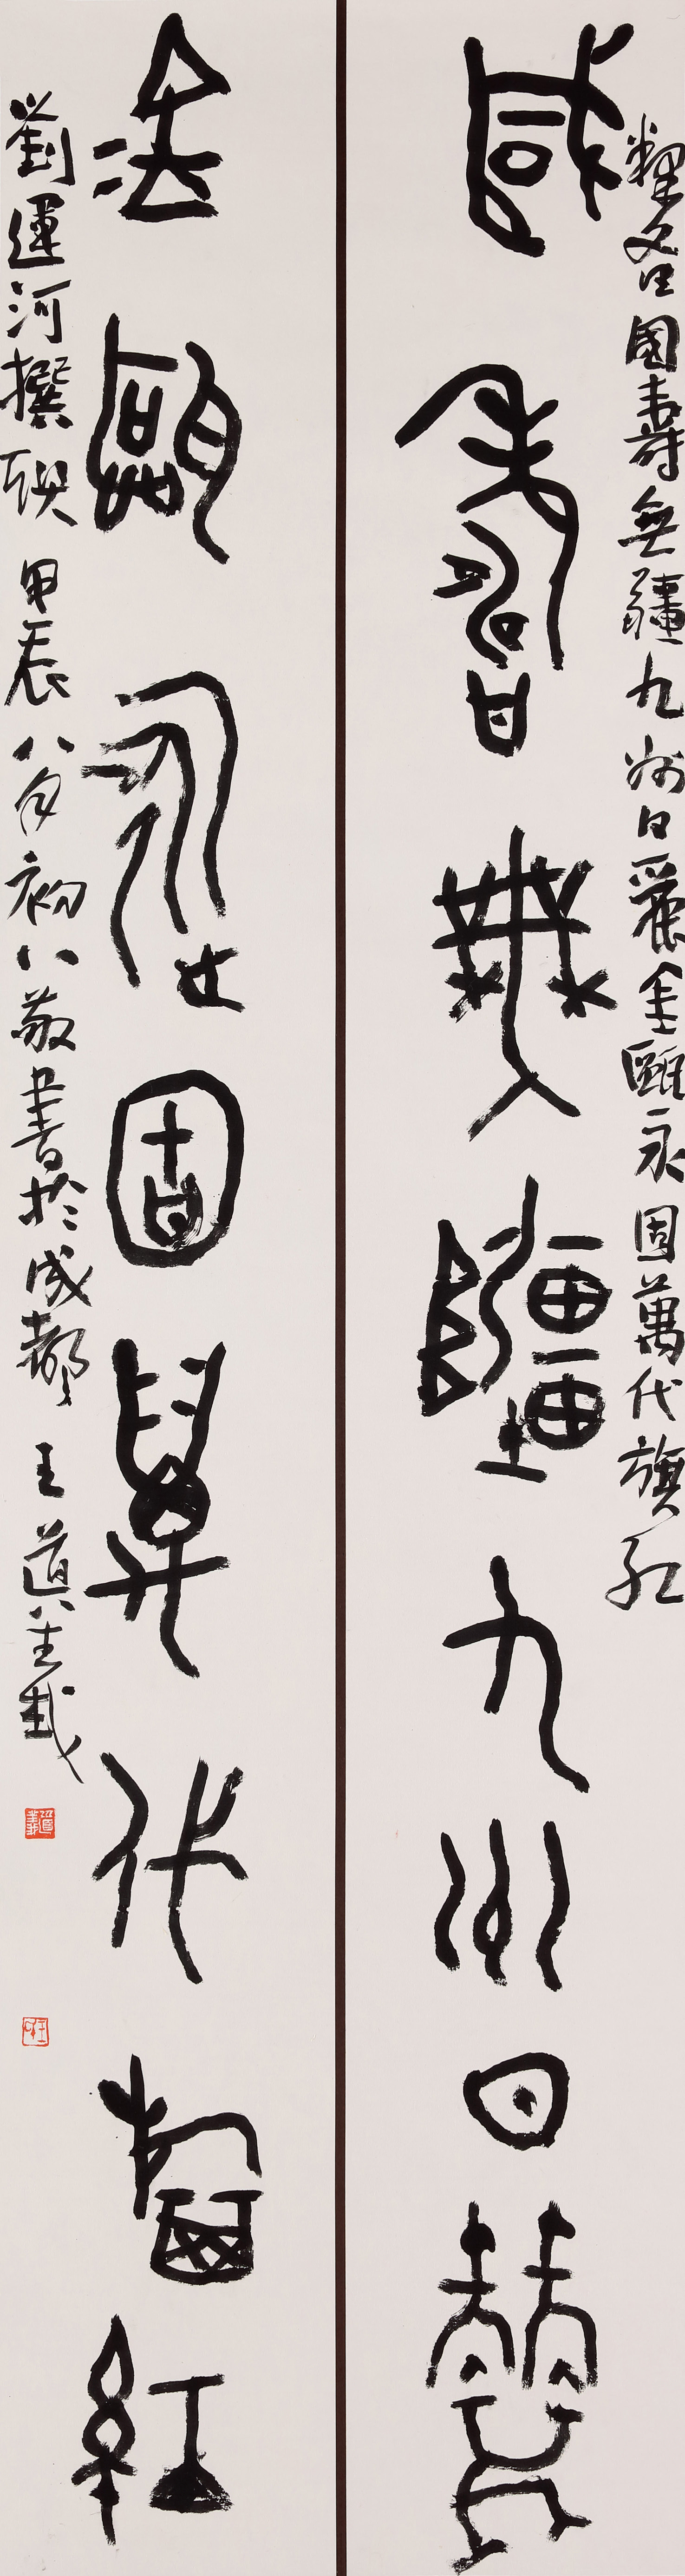 釋文曰國壽無疆九州日麗金甌永固萬代旗紅
國壽無疆九州日麗
金甌永固萬代旗紅
劉運河撰聯 甲辰八月初八敬書於成都 王道義